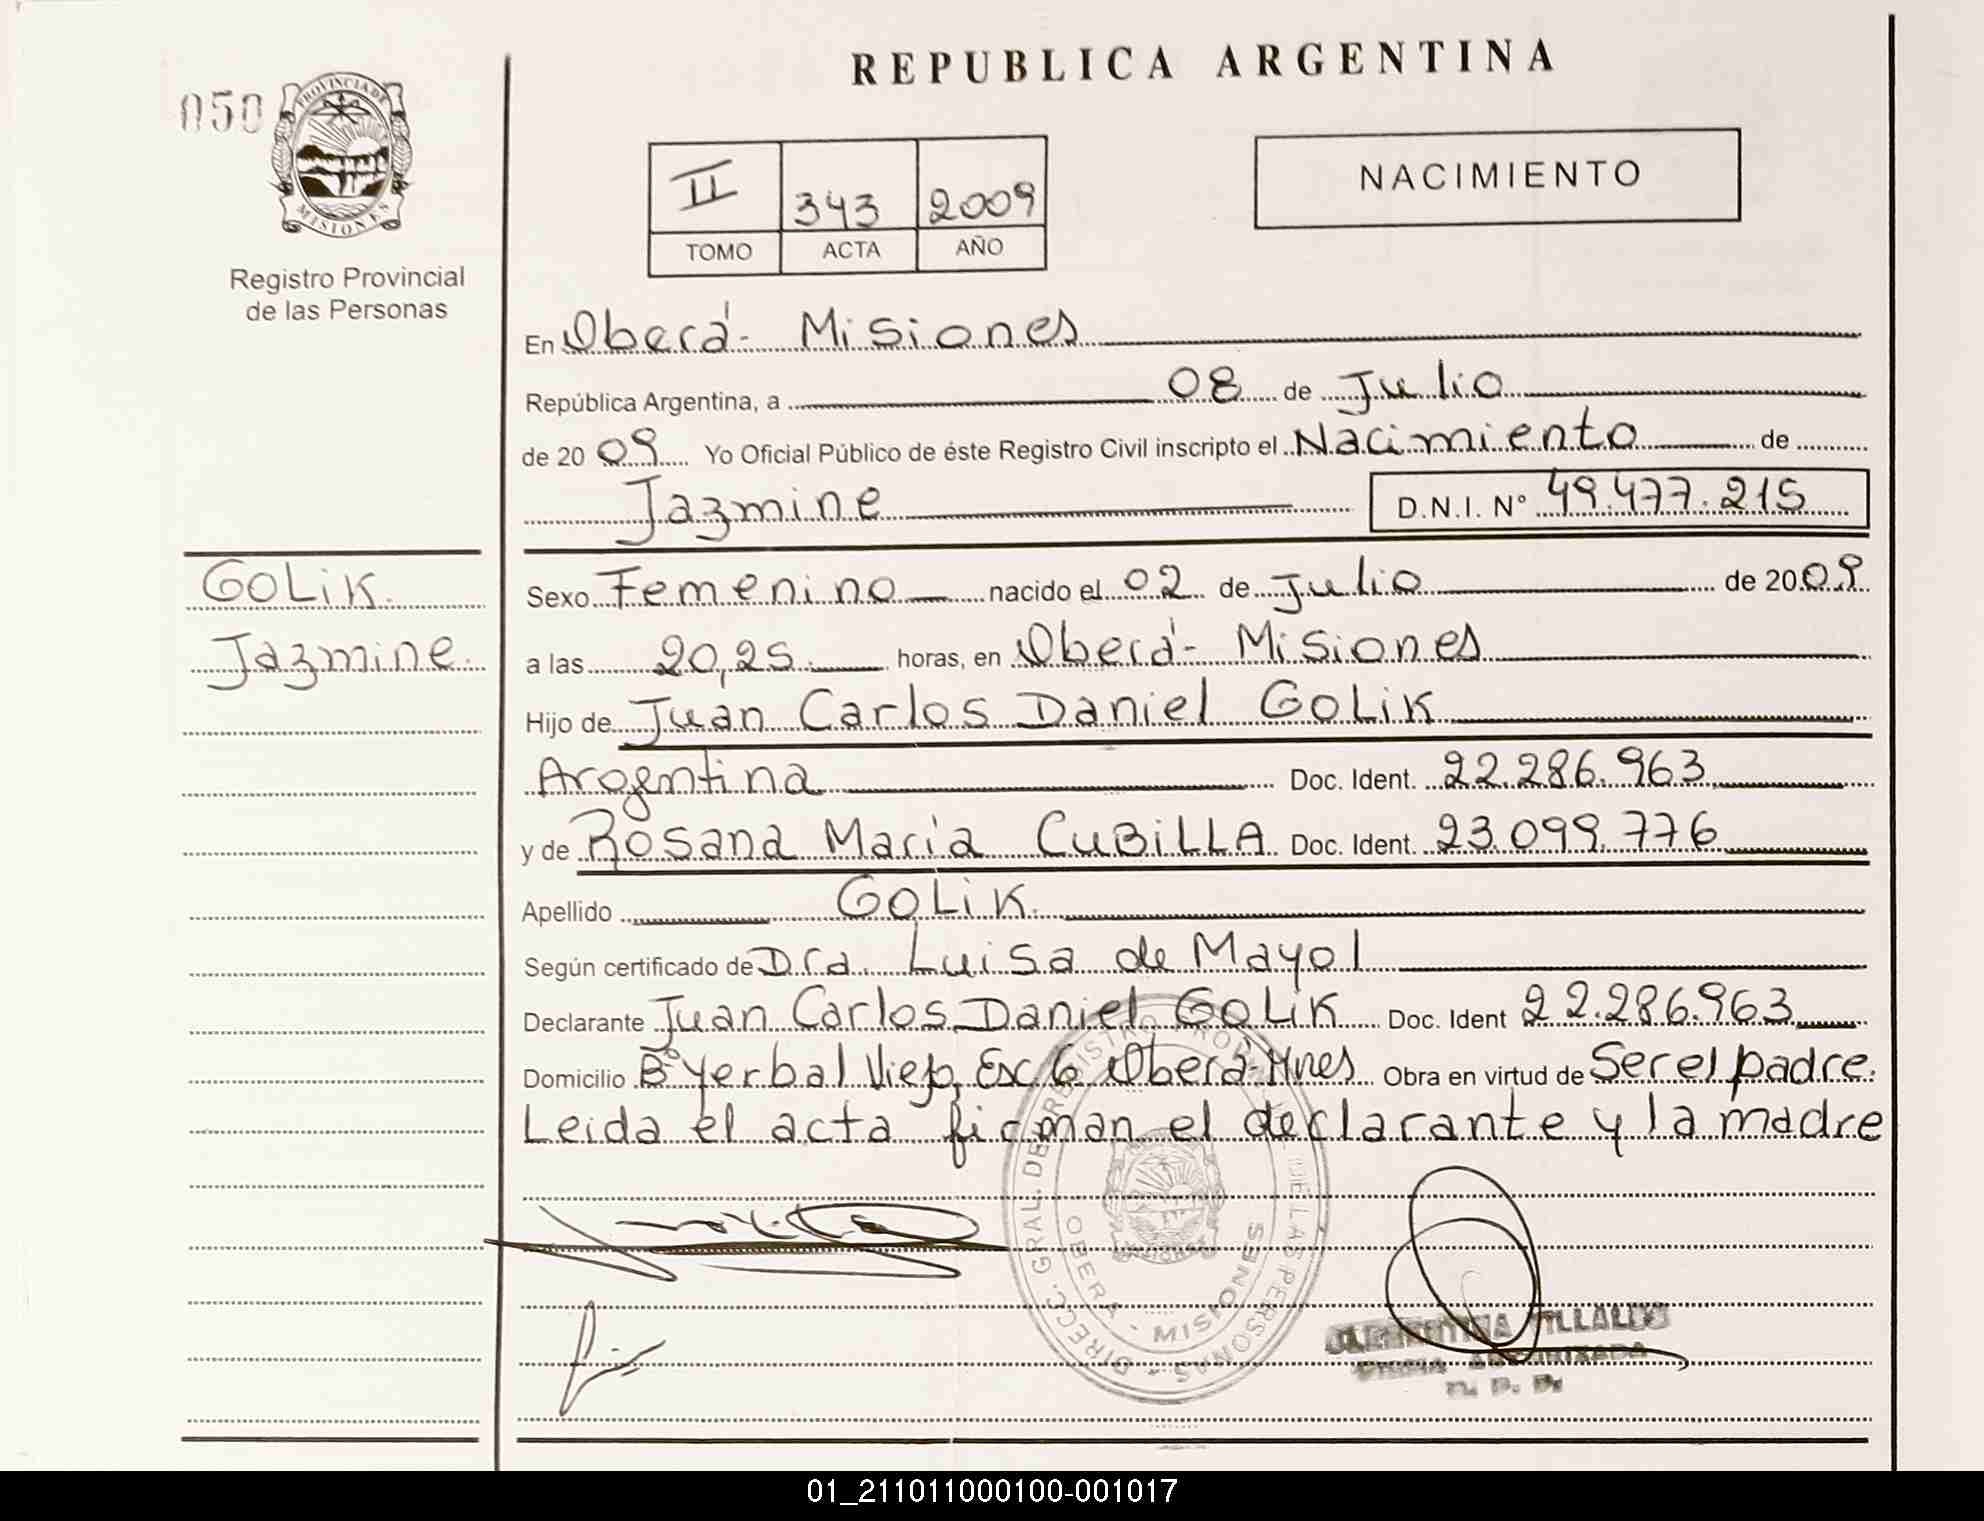 050
PROVINCIA DE
MISIONES
Registro Provincial
de las Personas
REPUBLICA ARGENTINA
II 343 2009
TOMO ACTA AÑO
NACIMIENTO
En Oberá - Misiones
República Argentina, a 08 de Julio
de 20 09 Yo Oficial Público de éste Registro Civil inscripto el Nacimiento de
Jazmine D.N.I. Nº 49.477.215
GOLiK
Jazmine
Sexo Femenino nacido el 02 de Julio de 2009
a las 20,25 horas, en Oberá - Misiones
Hijo de Juan Carlos Daniel GOLiK
Argentina Doc. Ident. 22.286.963
y de Rosana María CUBiLLA Doc. Ident. 23.099.776
Apellido GOLiK
Según certificado de Dra. Luisa de Mayol
Declarante Juan Carlos Daniel GOLiK Doc. Ident 22.286.963
Domicilio Bº Yerbal Viejo, Esc. 6 Oberá - Mnes Obra en virtud de Ser el padre.
Leida el acta firman el declarante y la madre
DIRECC. GRAL. DE REGISTRO PROVINCIAL DE LAS PERSONAS
OBERA - MISIONES
VILLALBA
FIRMA AUTORIZADA
01_211011000100-001017